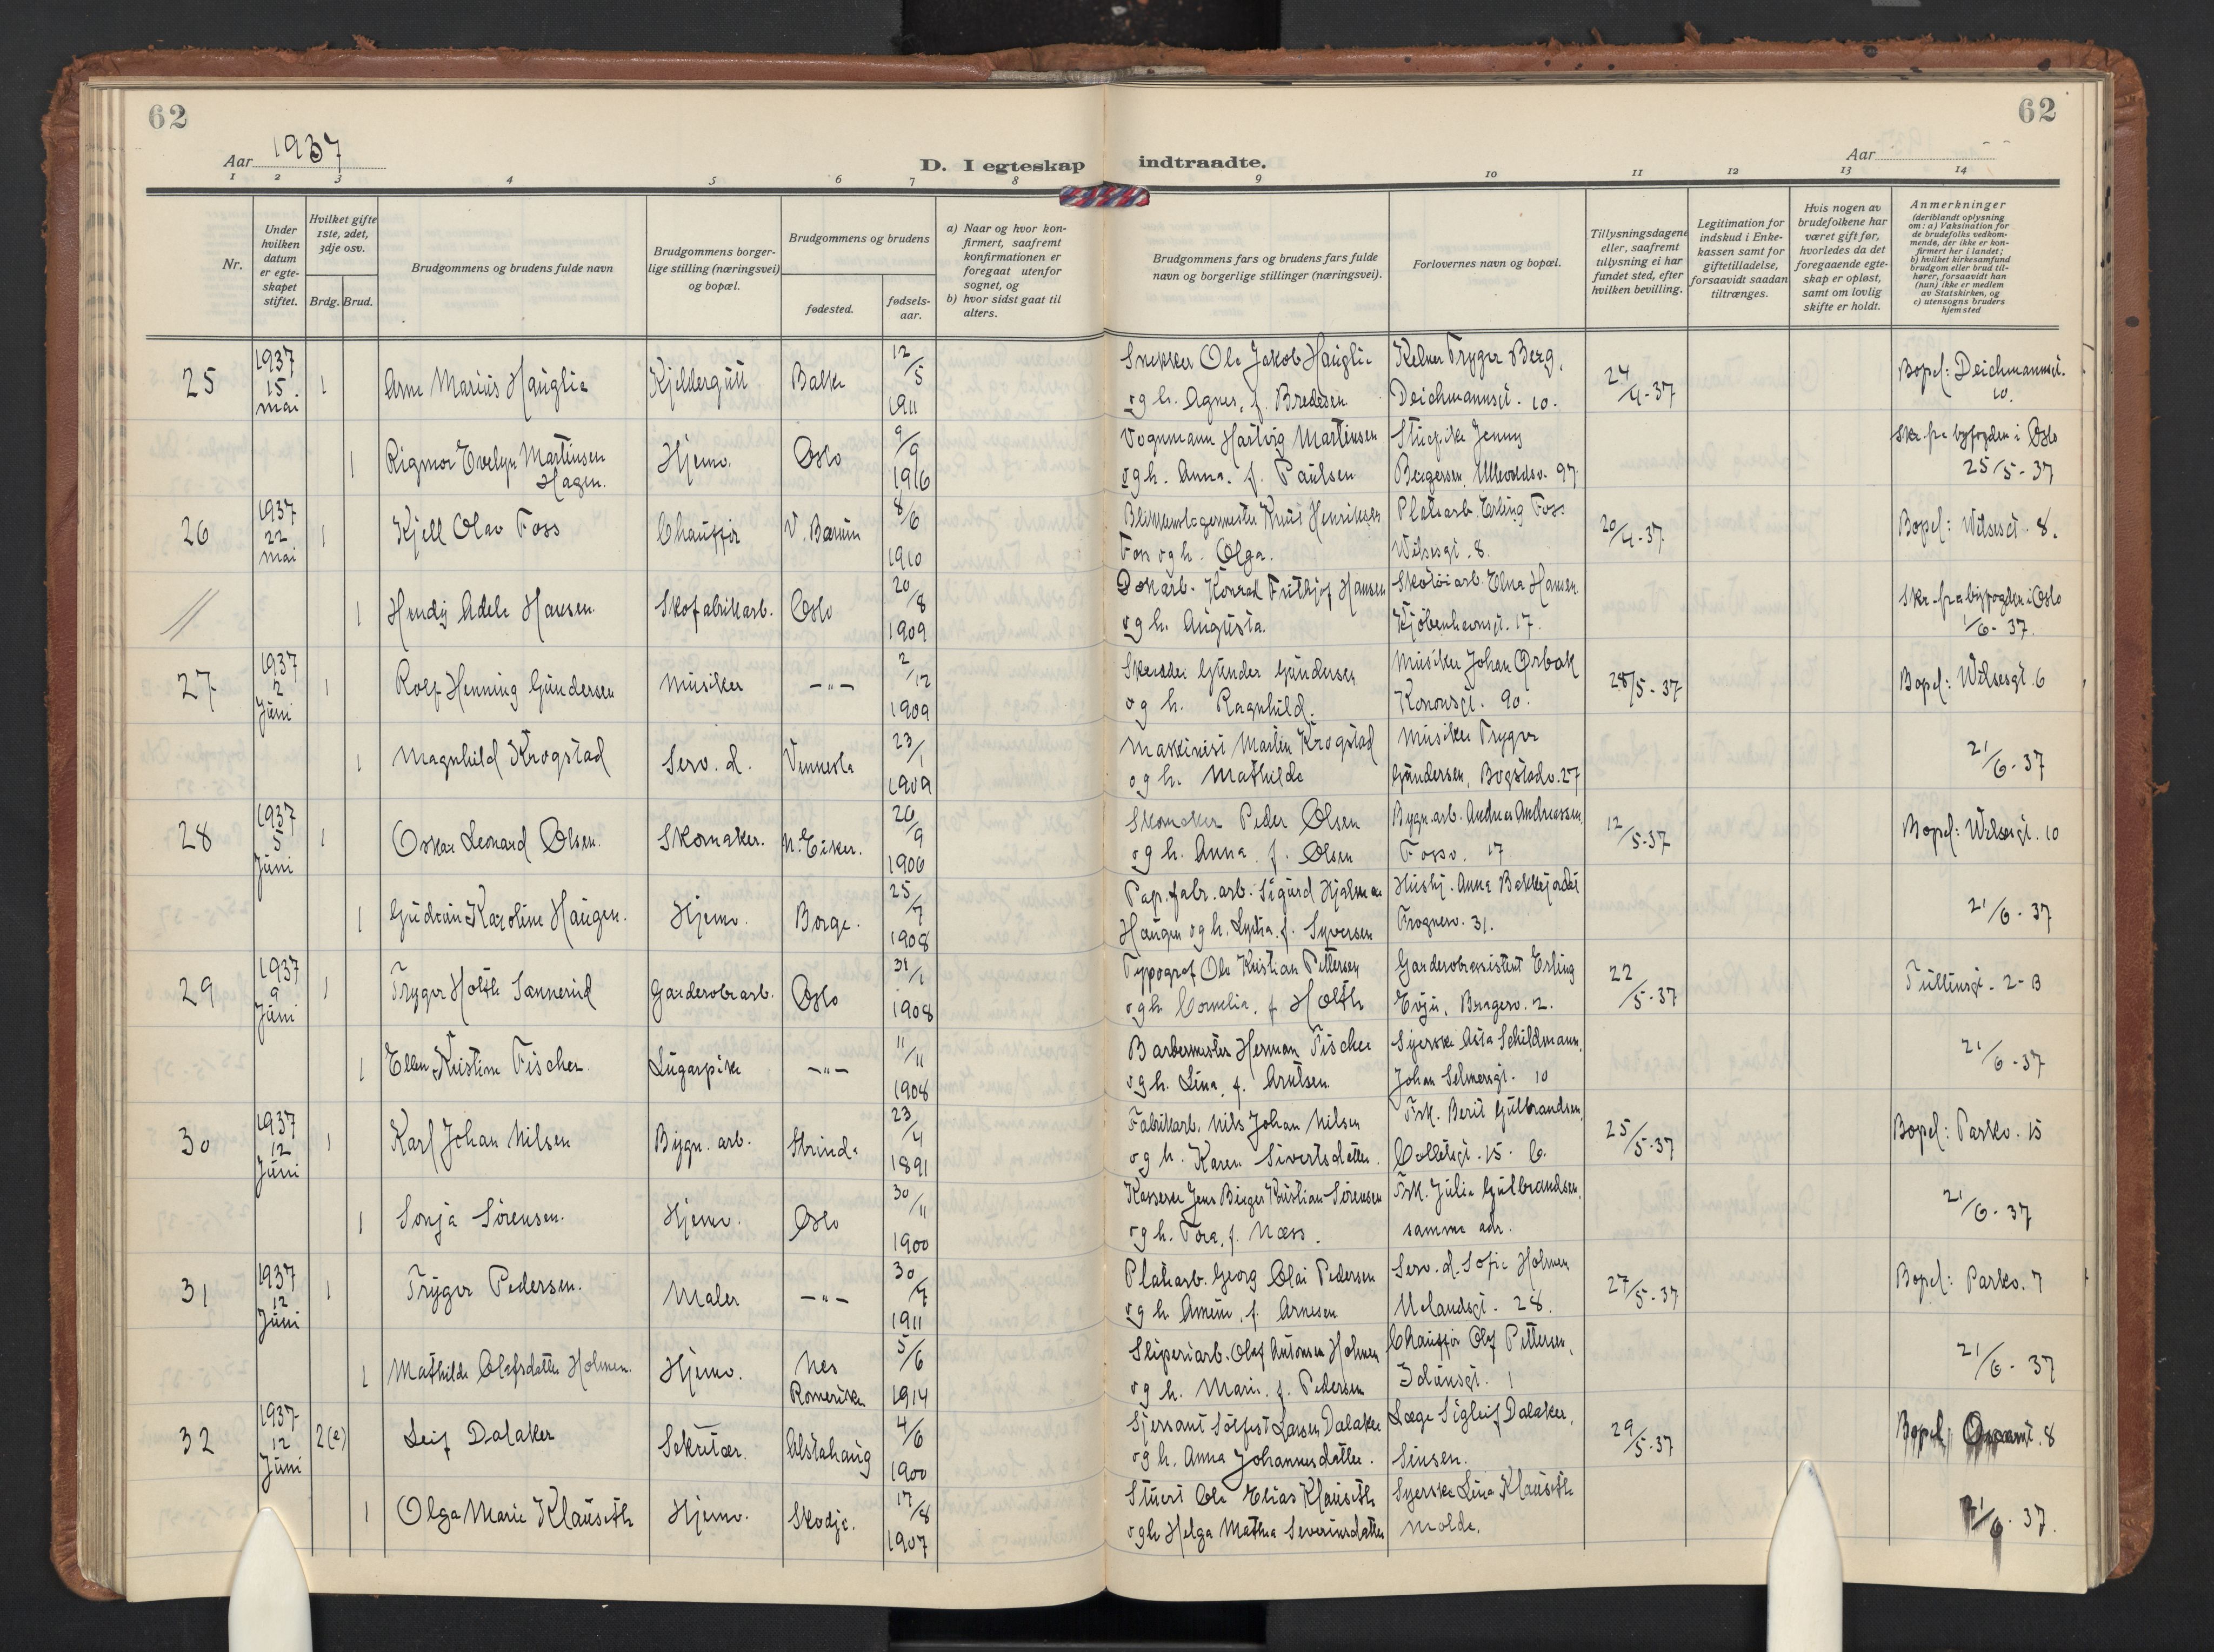 62
62
Aar 1937
D. I egteskap
indtraadte.
Aar
1 2 3 4 5 6 7 8 9 10 11 12 13 14
Nr.
Under
hvilken
datum
er egte-
skapet
stiftet.
Hvilket gifte
1ste, 2det,
3dje osv.
Brdg.
Brud.
Brudgommens og brudens fulde navn
Brudgommens borger-
lige stilling (næringsvei)
og bopæl.
Brudgommens og brudens
fødested.
fødsels-
aar.
a) Naar og hvor kon-
firmert, saafremt
konfirmationen er
foregaat utenfor
sognet, og
b) hvor sidst gaat til
alters.
Brudgommens fars og brudens fars fulde
navn og borgerlige stillinger (næringsvei).
Forlovernes navn og bopæl.
Tillysningsdagene
eller, saafremt
tillysning ei har
fundet sted, efter
hvilken bevilling.
Legitimation for
indskud i Enke-
kassen samt for
giftetilladelse,
forsaavidt saadan
tiltrænges.
Hvis nogen av
brudefolkene har
været gift før,
hvorledes da det
foregaaende egte-
skap er opløst,
samt om lovlig
skifte er holdt.
Anmerkninger
(deriblandt oplysning
om: a) Vaksination for
de brudefolks vedkom-
mende, der ikke er kon-
firmert her i landet;
b) hvilket kirkesamfund
brudgom eller brud til-
hører, forsaavidt han
(hun) ikke er medlem
av Statskirken, og
c) utensogns bruders
hjemsted
25
1937
15
mai
1
Arne Marius Hauglie
Kjeldergutt
Balke
12/5
1911
Snekker Ole Jakob Hauglie
og h. Agnes, f. Bredesen
Kelner Trygve Berg,
Deichmannsgt. 10.
24/4-37
Bopel: Deichmannsgt.
10.
1
Rigmor Evelyn Martinsen
Hagen.
Hjemv.
Oslo
9/9
1916
Vognmann Hartvig Martinsen
og h. Anna. f. Paulsen
Stuepike Jenny
Bergersen, Ullevoldsv. 97
Skr. fra byfogden i Oslo
25/5-37
26
1937
22
mai
1
Kjell Olav Foss
Chauffør
V. Bærum
8/6
1910
Blikkenslagermester Knut Henriksen
Foss og h. Olga.
Platearb. Erling Foss
Wilsesgt. 8.
20/4-37
Bopel: Wilsesgt. 8.
1
Hendy Adele Hansen.
Skofabrikarb.
Oslo
20/8
1909
Dokarb. Konrad Frithjof Hansen
og h. Augusta.
Skotøiarb. Elna Hansen
Kjøbenhavnsgt. 17.
Skr. fra byfogden i Oslo
1/6-37.
27
1937
2
Juni
1
Rolf Henning Gundersen
Musiker
-"-
2/12
1909
Skredder Gunder Gundersen
og h. Ragnhild.
Musiker Johan Ørbak
Konowsgt. 90.
28/5-37
Bopel: Wilsesgt. 6
1
Magnhild Krogstad
Serv. d.
Vennesla
23/1
1909
Maskinist Martin Krogstad
og h. Mathilde
Musiker Trygve
Gundersen, Bogstadv. 27
21/6-37
28
1937
5
Juni
1
Oskar Leonard Olsen.
Skomaker.
N. Eiker.
20/9
1906
Skomaker Peder Olsen
og h. Anna. f. Olsen
Bygn.arb. Andreas Andreassen,
Fossv. 17
12/5-37
Bopel: Wilsesgt. 10
1
Gudrun Karoline Haugen.
Hjemv.
Borge.
25/7
1908
Pap.fabr.arb. Sigurd Hjalmar
Haugen og h. Lydia. f. Syversen
Hushj. Anna Bakkejordet
Frognerv. 31.
21/6-37
29
1937
9
Juni
1
Trygve Holth Sannerud
Garderobearb.
Oslo
31/1
1908
Typograf Ole Kristian Pettersen
og h. Cornelia. f. Holth
Garderobeassistent Erling
Evju, Bragesv. 2.
22/5-37
Tullinsgt. 2-B
1
Ellen Kristine Fischer.
Lugarpike
-"-
11/11
1908
Barbermester Herman Fischer
og h. Lina, f. Arntsen
Syerske Asta Schildmann,
Johan Selmersgt. 10
21/6-37
30
1937
12
Juni
1
Karl Johan Nilsen
Bygn. arb.
Strinda
23/4
1891
Fabrikarb. Nils Johan Nilsen
og h. Karen Sivertsdatter.
Frk. Berit Gulbrandsen,
Colletsgt. 15. C.
25/5-37
Bopel: Parkv. 15
1
Sonja Sørensen.
Hjemv.
Oslo
30/11
1900
Kasserer Jens Birger Kristian Sørensen
og h. Tora, f. Næss.
Frk. Julia Gulbrandsen,
samme adr.
21/6-37
31
1937
12
Juni
1
Trygve Pedersen.
Maler
-"-
30/7
1911
Platearb. Georg Olai Pedersen
og h. f. Arnesen
Serv. d. Sofie Holmen
Uelandsgt. 28.
27/5-37
Bopel: Parkv. 7
1
Mathilde Olafsdatter Holmen.
Hjemv.
Nes
Romerike
5/6
1914
Sliperiarb. Olaf Antonsen Holmen
og h. Marie. f. Pedersen
Chauffør Olaf Pettersen,
Idunsgt. 1
21/6-37
32
1937
12
Juni
2(e)
Leif Dalaker
Sekretær.
Alstahaug
4/6
1900
Sjersant Solfest Larsen Dalaker
og h. Anna Johannesdatter.
Læge Sigleif Dalaker,
Sinsen.
29/5-37
Bopel: 8
1
Olga Marie Klauseth
Hjemv.
Skodje.
17/8
1907
Stuert Ole Elias Klauseth
og h. Helga Mathea Severinsdatter
Syerske Lina Klauseth
Molde.
21/6-37.